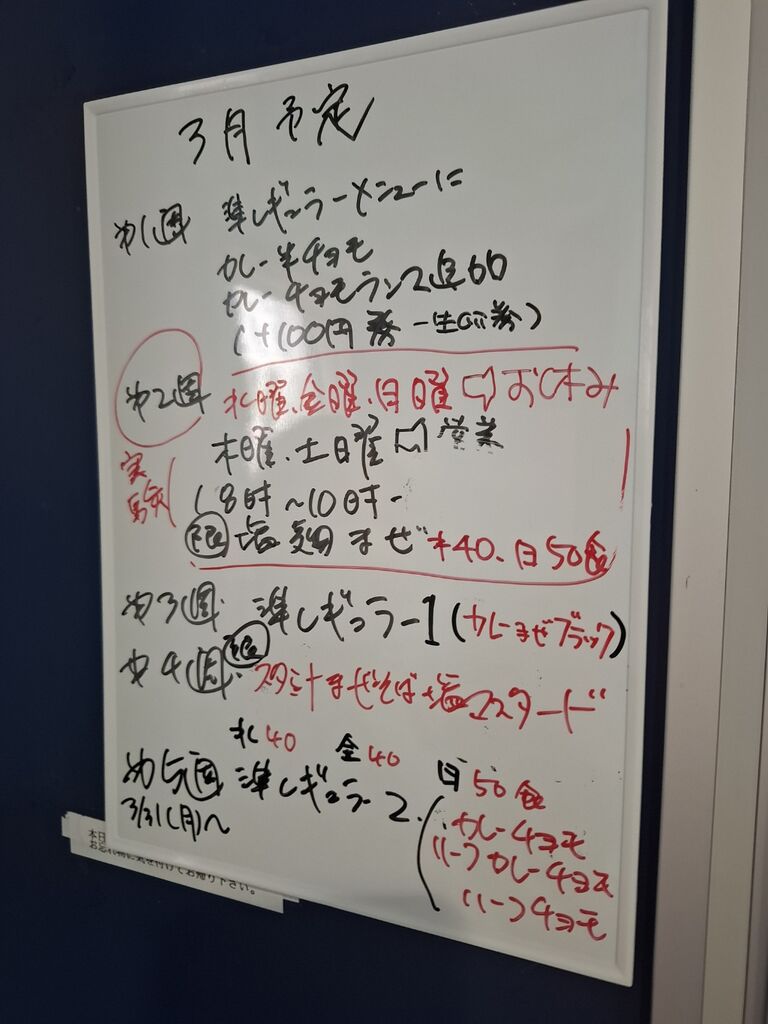 3月予定
第1週 準レギュラーメニューに
カレー半チョモ
カレーチョモランマ追加
(+100円券 一生
第2週 水曜、金曜、日曜⇨お休み
実験
木曜、土日曜⇨営業
(8時〜10時
限 塩 まぜ 木40、日50食
第3週 準レギュラー1(カレーまぜブラック)
第4週 限 スタミナまぜそば塩マスタード
水40 金40 日50食
第5週 準レギュラー2
3/31(月)〜
カレーチョモ
ハーフカレーチョモ
ハーフチョモ
本日
お忘れ物に気を付けてお帰り下さい。